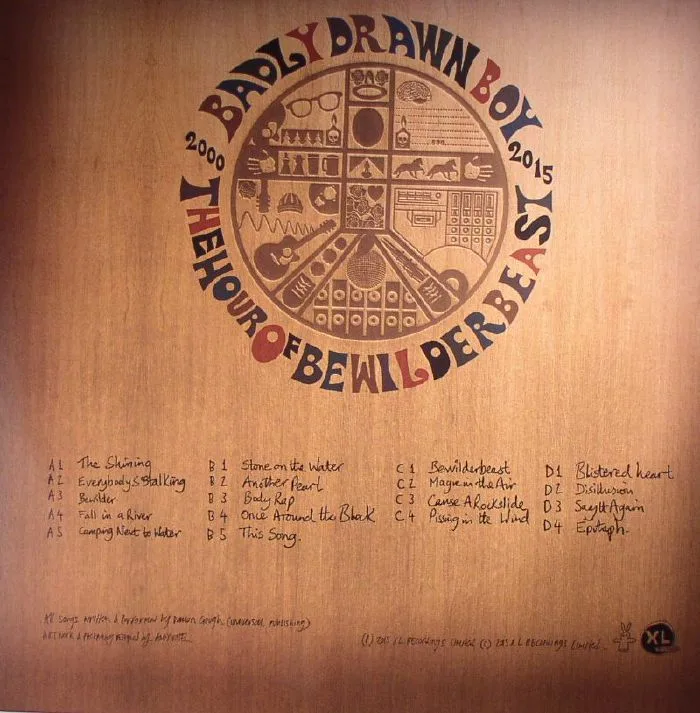 BADLY DRAWN BOY
2000
2015
THE HOUR OF BEWILDERBEAST
A1 The Shining
A2 Everybody's Stalking
A3 Bewilder
A4 Fall in a River
A5 Camping Next to Water
B1 Stone on the Water
B2 Another Pearl
B3 Body Rap
B4 Once Around the Block
B5 This Song.
C1 Bewilderbeast
C2 Magic in the Air
C3 Cause A Rockslide
C4 Pissing in the Wind
D1 Blistered heart
D2 Disillusion
D3 Say It Again
D4 Epitaph.
All songs written & performed by Damon Gough (universal publishing)
ARTWORK & Packaging Designed by
(P) 2015 XL RECORDINGS LIMITED (C) 2015 XL RECORDINGS LIMITED.
XL